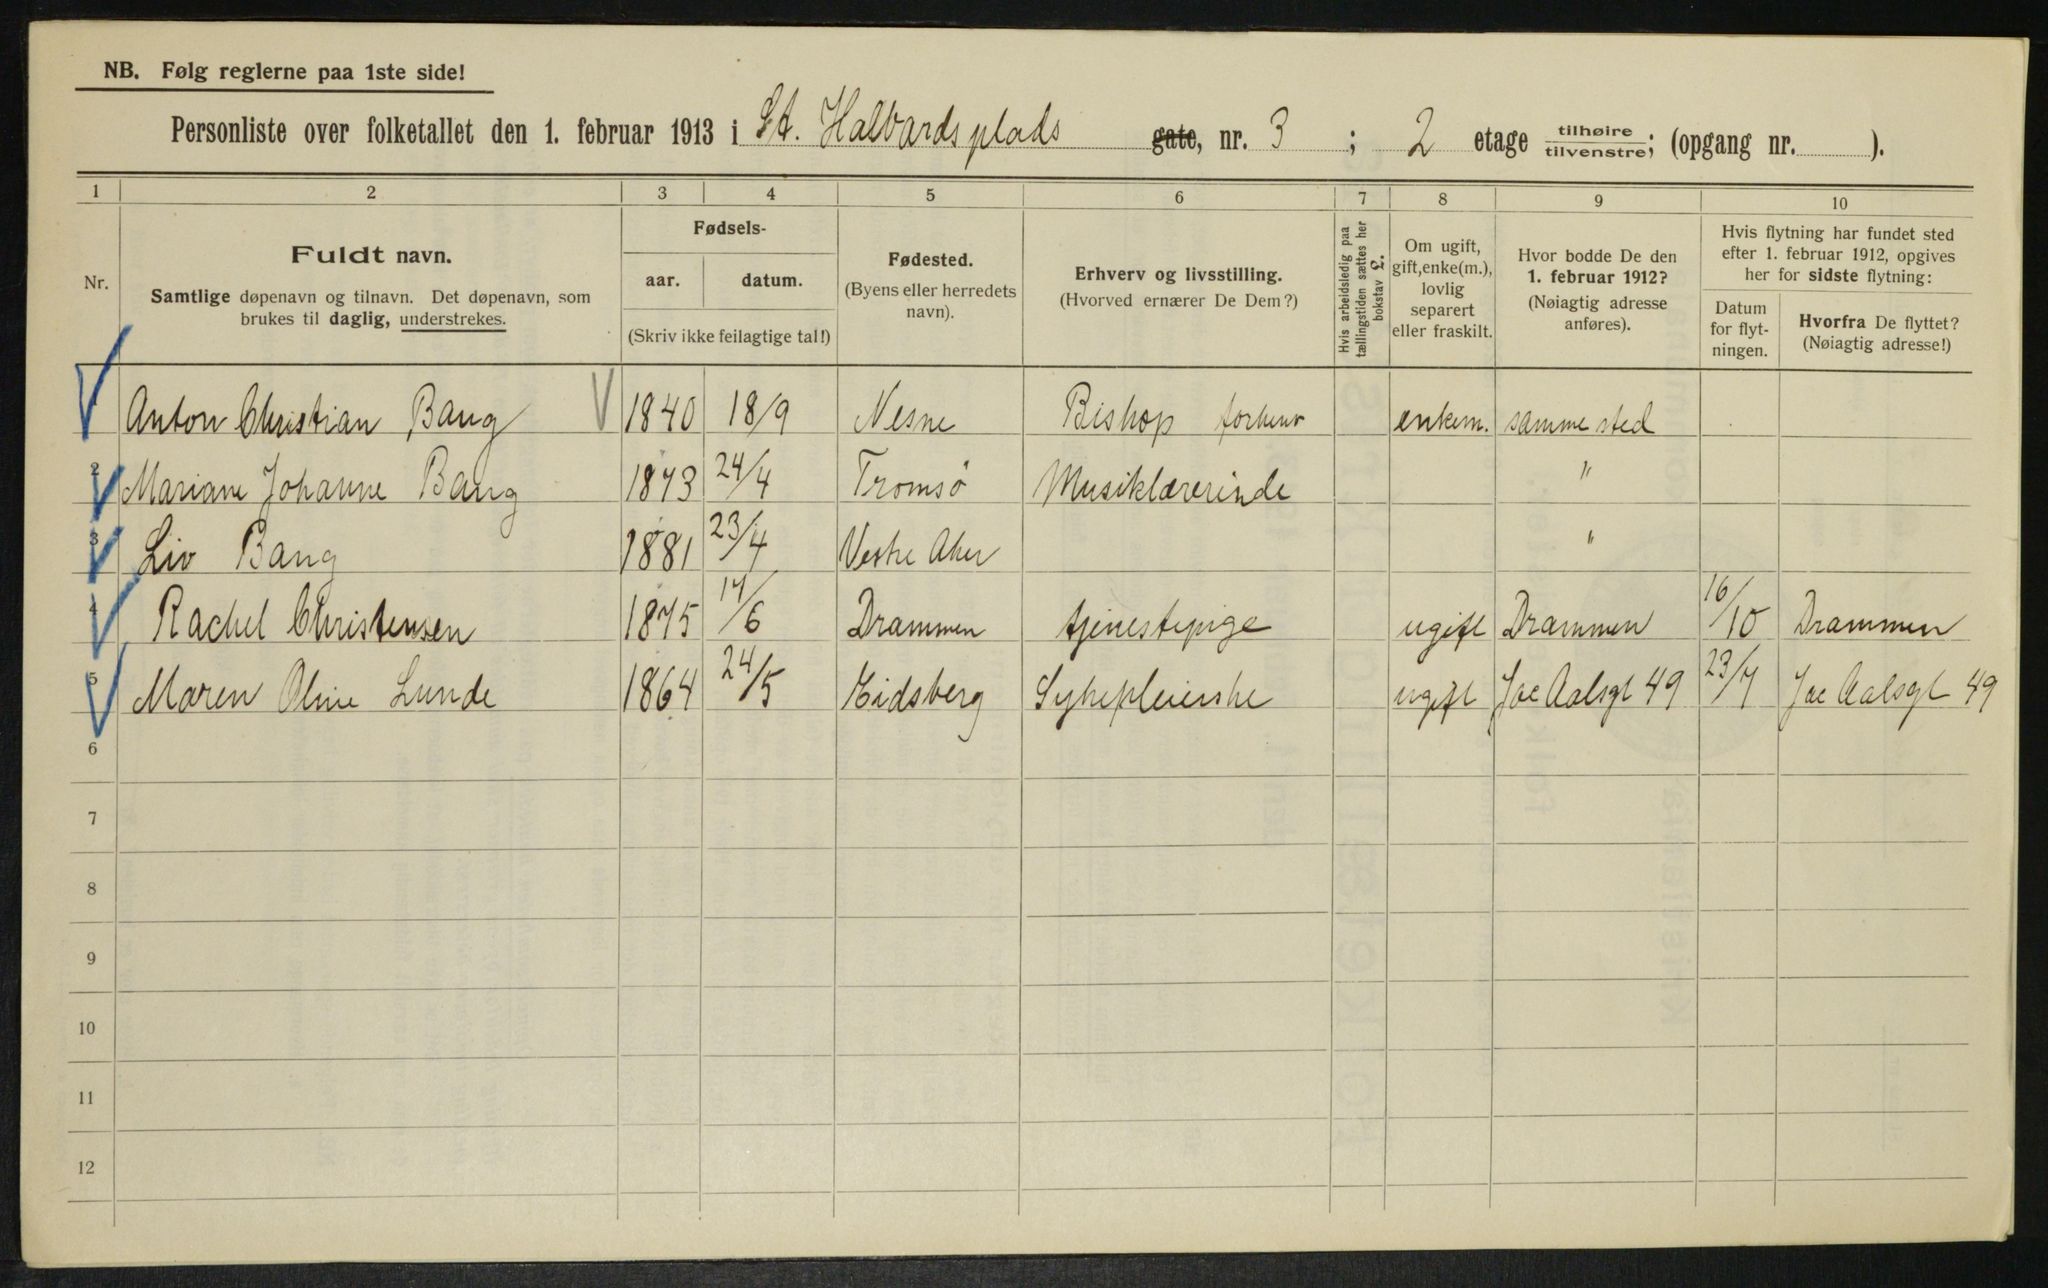 NB. Følg reglerne paa 1ste side!
Personliste over folketallet den 1. februar 1913 i St. Halvards plads gate, nr. 3 ; 2 etage tilhøire / tilvenstre; (opgang nr. ).
1 2 3 4 5 6 7 8 9 10
Nr.
Fuldt navn.
Samtlige døpenavn og tilnavn. Det døpenavn, som
brukes til daglig, understrekes.
Fødsels-
aar. datum.
(Skriv ikke feilagtige tal!)
Fødested.
(Byens eller herredets
navn).
Erhverv og livsstilling.
(Hvorved ernærer De Dem?)
Hvis arbeidsledig paa
tællingstiden sættes her
bokstav L.
Om ugift,
gift, enke(m.),
lovlig
separert
eller fraskilt.
Hvor bodde De den
1. februar 1912?
(Nøiagtig adresse
anføres).
Hvis flytning har fundet sted
efter 1. februar 1912, opgives
her for sidste flytning:
Datum
for flyt-
ningen.
Hvorfra De flyttet?
(Nøiagtig adresse!)
Anton Christian Bang 1840 18/9 Nesne Bishop forhenv enkem. samme sted
2 Mariane Johanne Bang 1873 24/4 Tromsö Musiklærerinde "
3 Liv Bang 1881 23/4 Vestre Aker "
4 Rachel Christensen 1875 17/6 Drammen tjenestepige ugift Drammen 16/10 Drammen
5 Maren Oline Lunde 1864 24/5 Eidsberg Sykepleierske ugift Jac Aalsgt 49 23/7 Jac Aalsgt 49
6
7
8
9
10
11
12